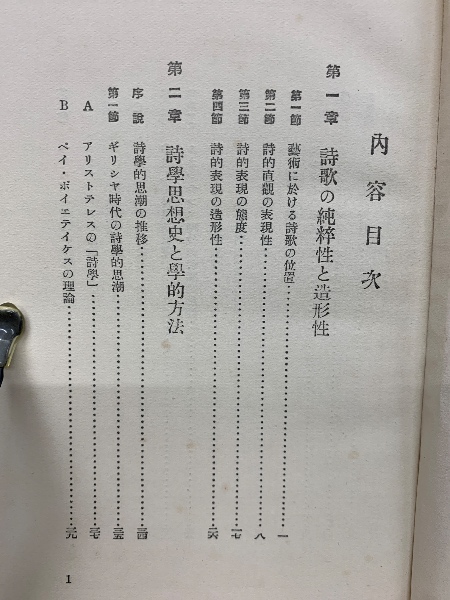 內容目次
第一章 詩歌の純粹性と造形性
第一節 藝術に於ける詩歌の位置 一
第二節 詩的直觀の表現性 八
第三節 詩的表現の態度 一七
第四節 詩的表現の造形性
第二章 詩學思想史と學的方法
序說 詩學的思潮の推移
第一節 ギリシヤ時代の詩學的思潮
A アリストテレスの「詩學」
B ペイ・ポイエテイケスの理論
1